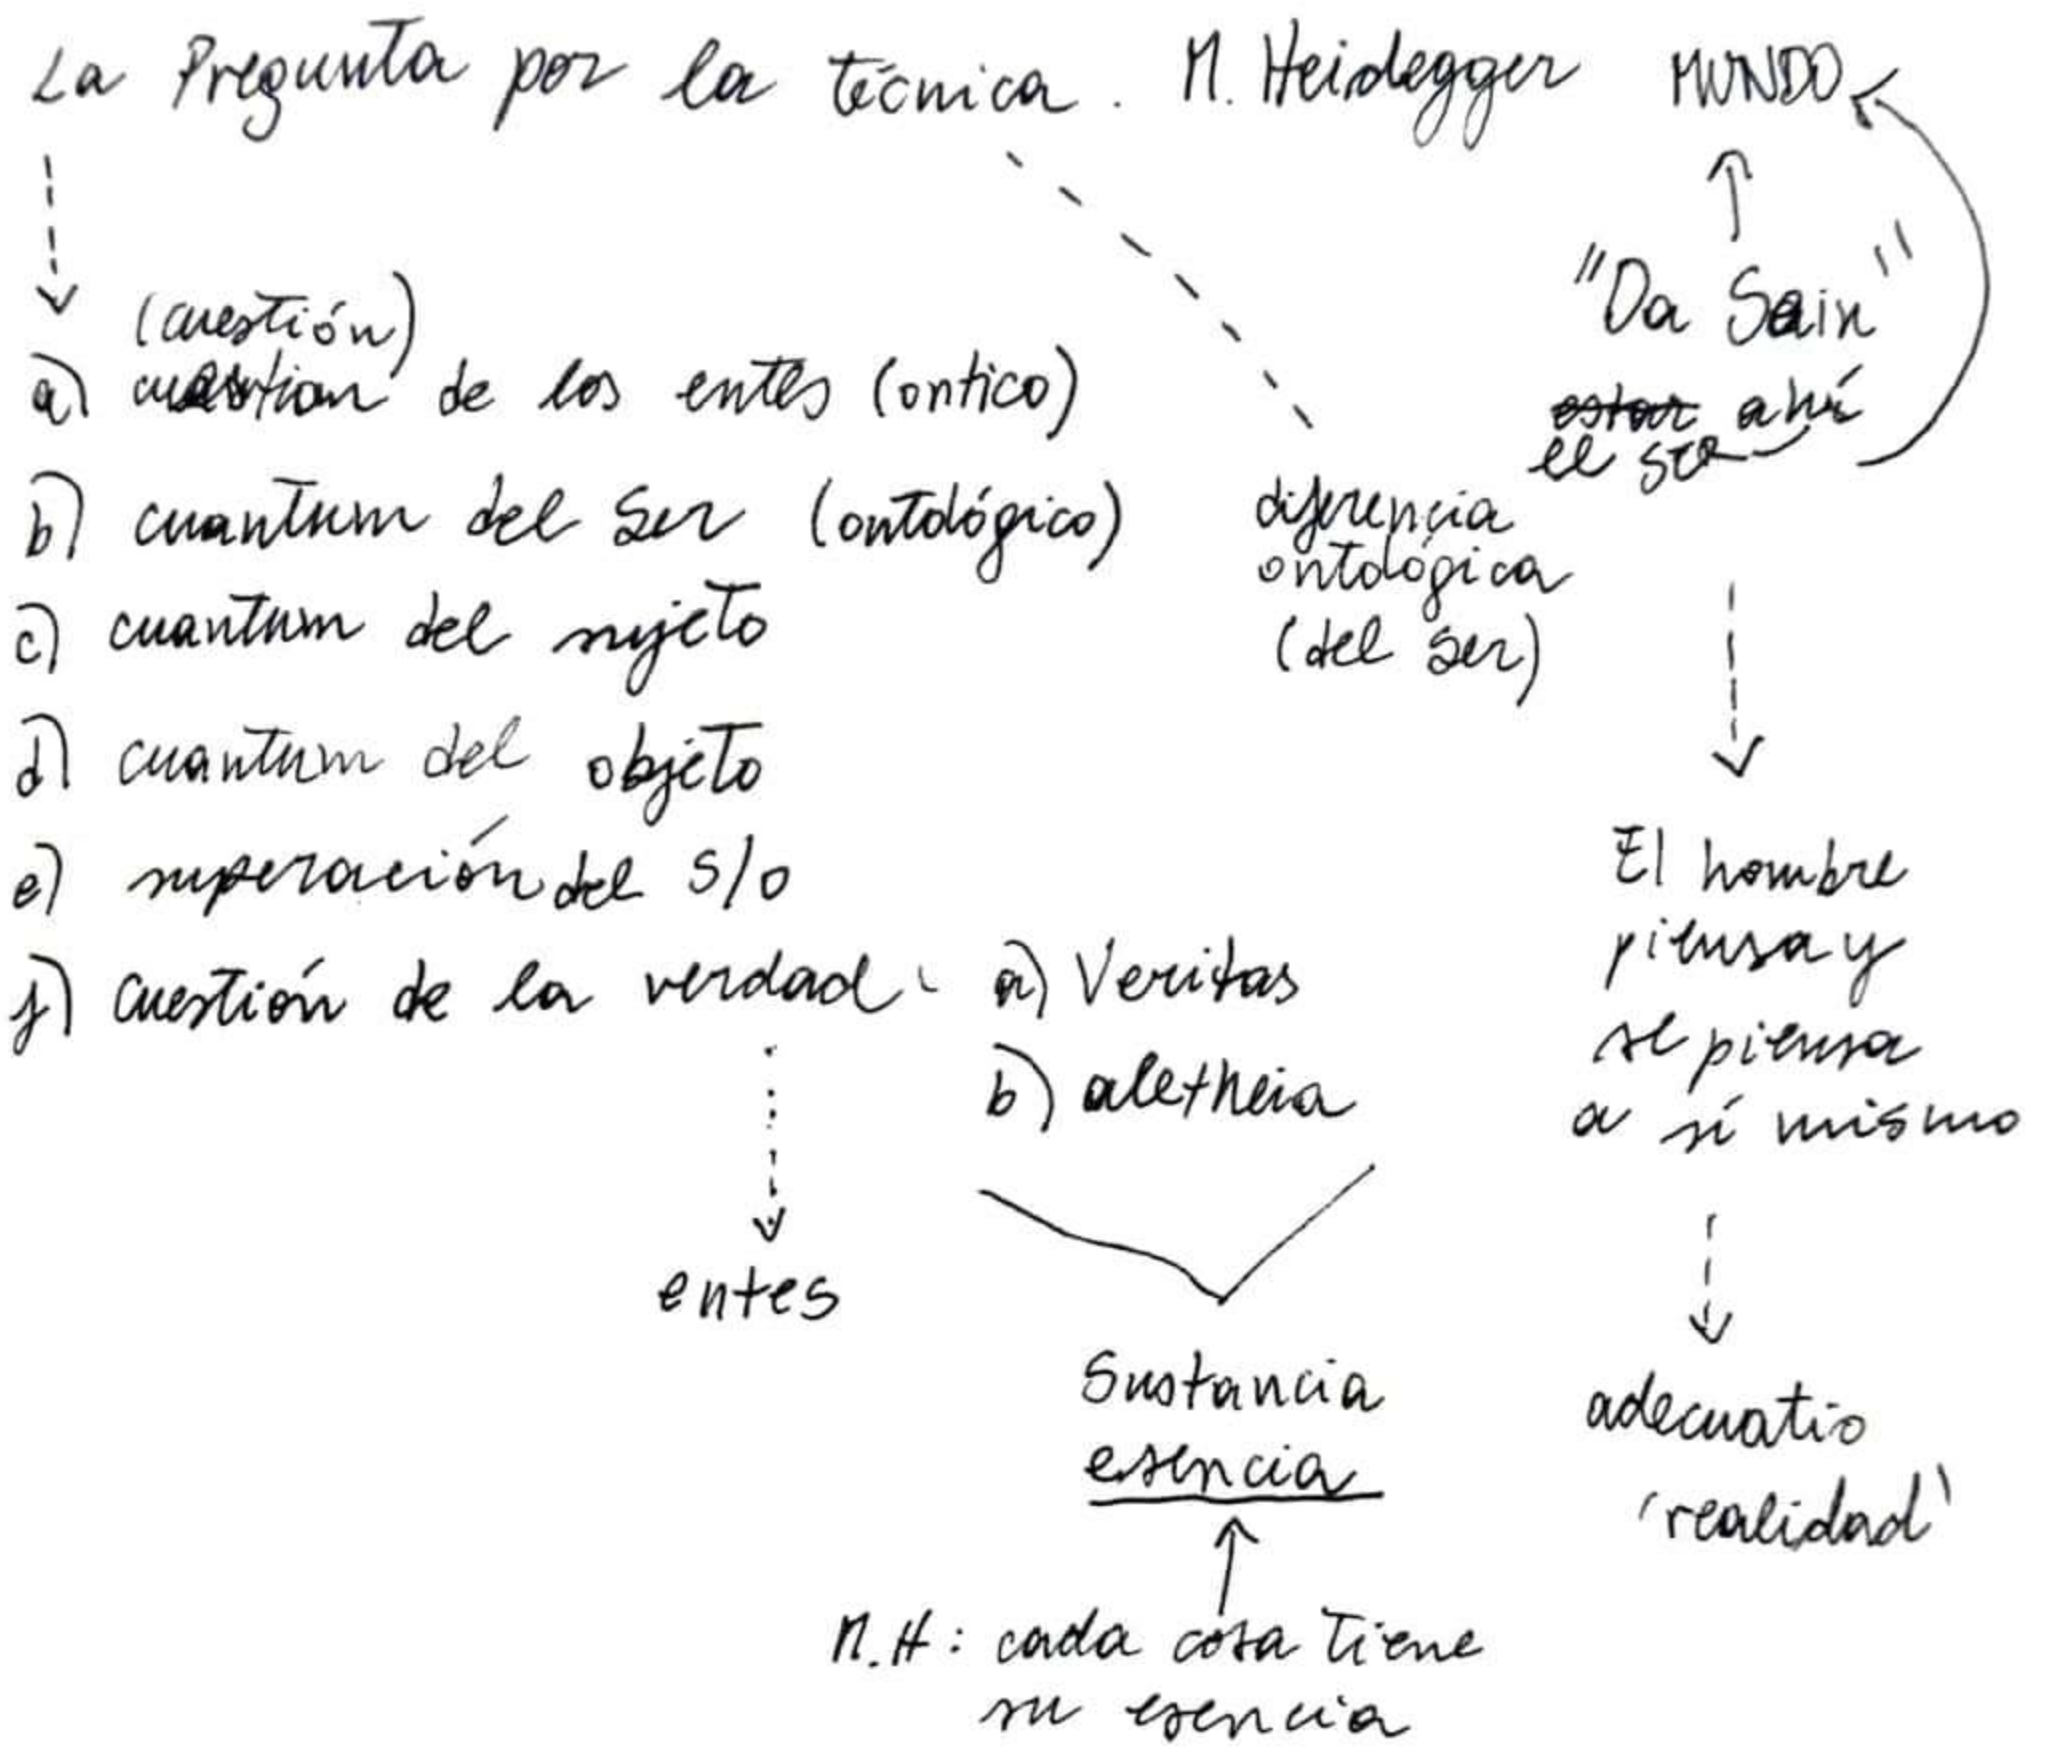 La Pregunta por la técnica. M. Heidegger
MUNDO
"Da Sein"
estar ahí
el ser
(cuestión)
a) cuestion de los entes (ontico)
b) cuantum del Ser (ontológico)
c) cuantum del sujeto
d) cuantum del objeto
e) superación del S/O
f) cuestión de la verdad
diferencia
ontológica
(del Ser)
a) Veritas
b) aletheia
entes
Sustancia
esencia
M.H: cada cosa tiene
su esencia
El hombre
piensa y
se piensa
a sí mismo
adecuatio
'realidad'